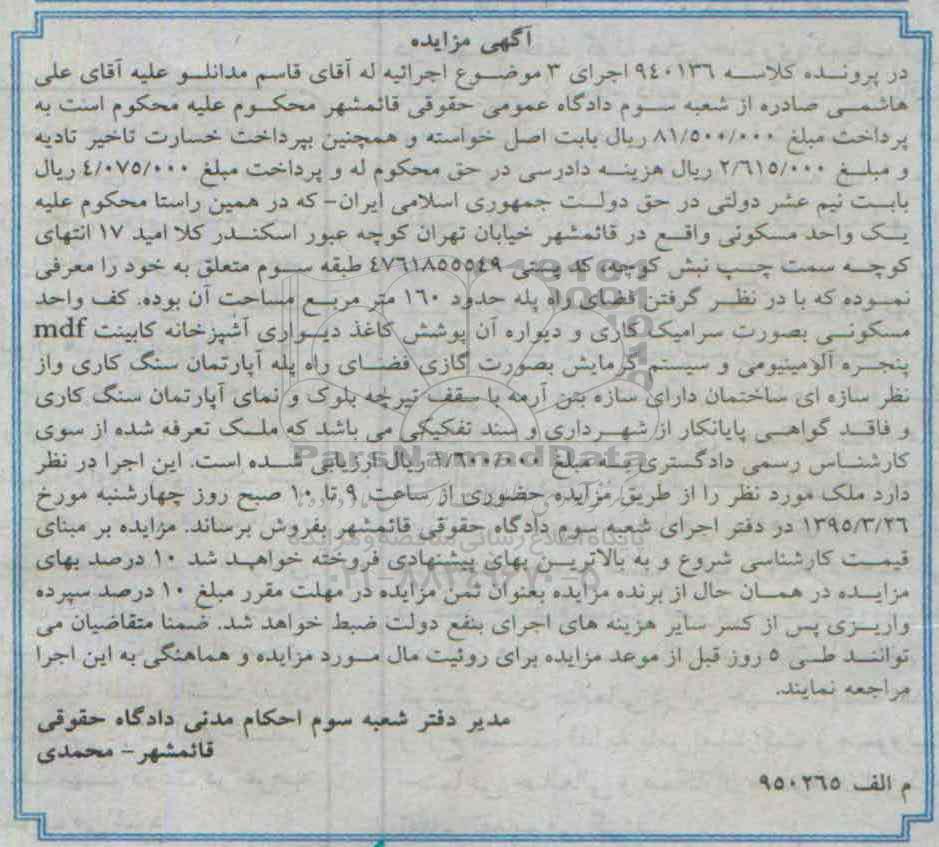 آگهی مزایده
در پرونده کلاسه ۹٤۰۱۳٦ اجرای ۳ موضوع اجرائیه له آقای قاسم مدانلو علیه آقای علی
هاشمی صادره از شعبه سوم دادگاه عمومی حقوقی قائمشهر محکوم علیه محکوم است به
پرداخت مبلغ ۸۱/۵۰۰/۰۰۰ ریال بابت اصل خواسته و همچنین بپرداخت خسارت تاخیر تادیه
و مبلغ ۲/٦۱۵/۰۰۰ ریال هزینه دادرسی در حق محکوم له و پرداخت مبلغ ٤/۰۷۵/۰۰۰ ریال
بابت نیم عشر دولتی در حق دولت جمهوری اسلامی ایران- که در همین راستا محکوم علیه
یک واحد مسکونی واقع در قائمشهر خیابان تهران کوچه عبور اسکندر کلا امید ۱۷ انتهای
کوچه سمت چپ نبش کوچه، کد پستی ٤۷٦۱۸۵۵۵٤۹ طبقه سوم متعلق به خود را معرفی
نموده که با در نظر گرفتن فضای راه پله حدود ۱٦۰ متر مربع مساحت آن بوده. کف واحد
مسکونی بصورت سرامیک کاری و دیواره آن پوشش کاغذ دیواری آشپزخانه کابینت mdf
پنجره آلومینیومی و سیستم گرمایش بصورت گازی فضای راه پله آپارتمان سنگ کاری واز
نظر سازه ای ساختمان دارای سازه بتن آرمه با سقف تیرچه بلوک و نمای آپارتمان سنگ کاری
و فاقد گواهی پایانکار از شهرداری و سند تفکیکی می باشد که ملک تعرفه شده از سوی
کارشناس رسمی دادگستری به مبلغ ریال ارزیابی شده است. این اجرا در نظر
دارد ملک مورد نظر را از طریق مزایده حضوری از ساعت ۹ تا ۱۰ صبح روز چهارشنبه مورخ
۱۳۹۵/۳/۲٦ در دفتر اجرای شعبه سوم دادگاه حقوقی قائمشهر بفروش برساند. مزایده بر مبنای
قیمت کارشناسی شروع و به بالاترین بهای پیشنهادی فروخته خواهد شد ۱۰ درصد بهای
مزایده در همان حال از برنده مزایده بعنوان ثمن مزایده در مهلت مقرر مبلغ ۱۰ درصد سپرده
واریزی پس از کسر سایر هزینه های اجرای بنفع دولت ضبط خواهد شد. ضمنا متقاضیان می
توانند طی ۵ روز قبل از موعد مزایده برای روئیت مال مورد مزایده و هماهنگی به این اجرا
مراجعه نمایند.
مدیر دفتر شعبه سوم احکام مدنی دادگاه حقوقی
قائمشهر- محمدی
م الف ۹۵۰۲٦۵
ParsNamadData
پایگاه اطلاع رسانی مناقصه و مزایده